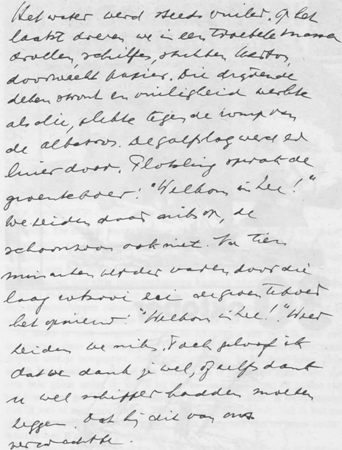 Het water werd steeds vuiler. Op het
laatst dreven we in een troebele massa
drollen, schilfers, stukken karton,
doorweekt papier. Die drijvende
deken stront en vuiligheid werkte
als olie, plakte tegen de romp van
de albatros. De golfslag werd er
door. Plotseling sprak de
groenteboer: "Welkom in zee!"
We zeiden daar niks op, de
schoonzoon ook niet. Na tien
minuten verder varen door die
laag zei de groenteboer
het opnieuw: "Welkom in zee!". Weer
zeiden we niks. Toch geloof ik
dat we dank je wel, of zelfs dank
u wel schipper hadden moeten
zeggen. Dat hij dit van ons
verwachtte.